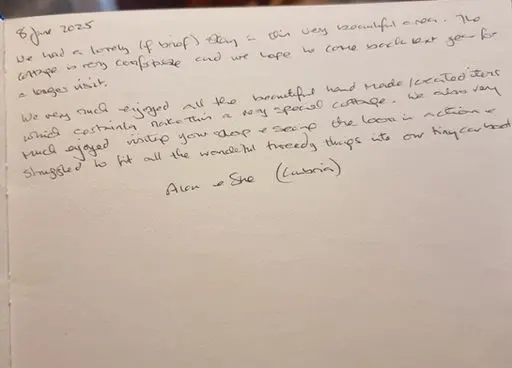 8 June 2025
We had a lovely (if brief) stay in this very beautiful area. The
cottage is very comfortable and we hope to come back next year for
a longer visit.
We very much enjoyed all the beautiful hand made/created items
which certainly make this a very special cottage. We also very
much enjoyed visiting your shop & seeing the loom in action &
struggled to fit all the wonderful tweedy things into our tiny car boot
Alan & Sue (Cumbria)